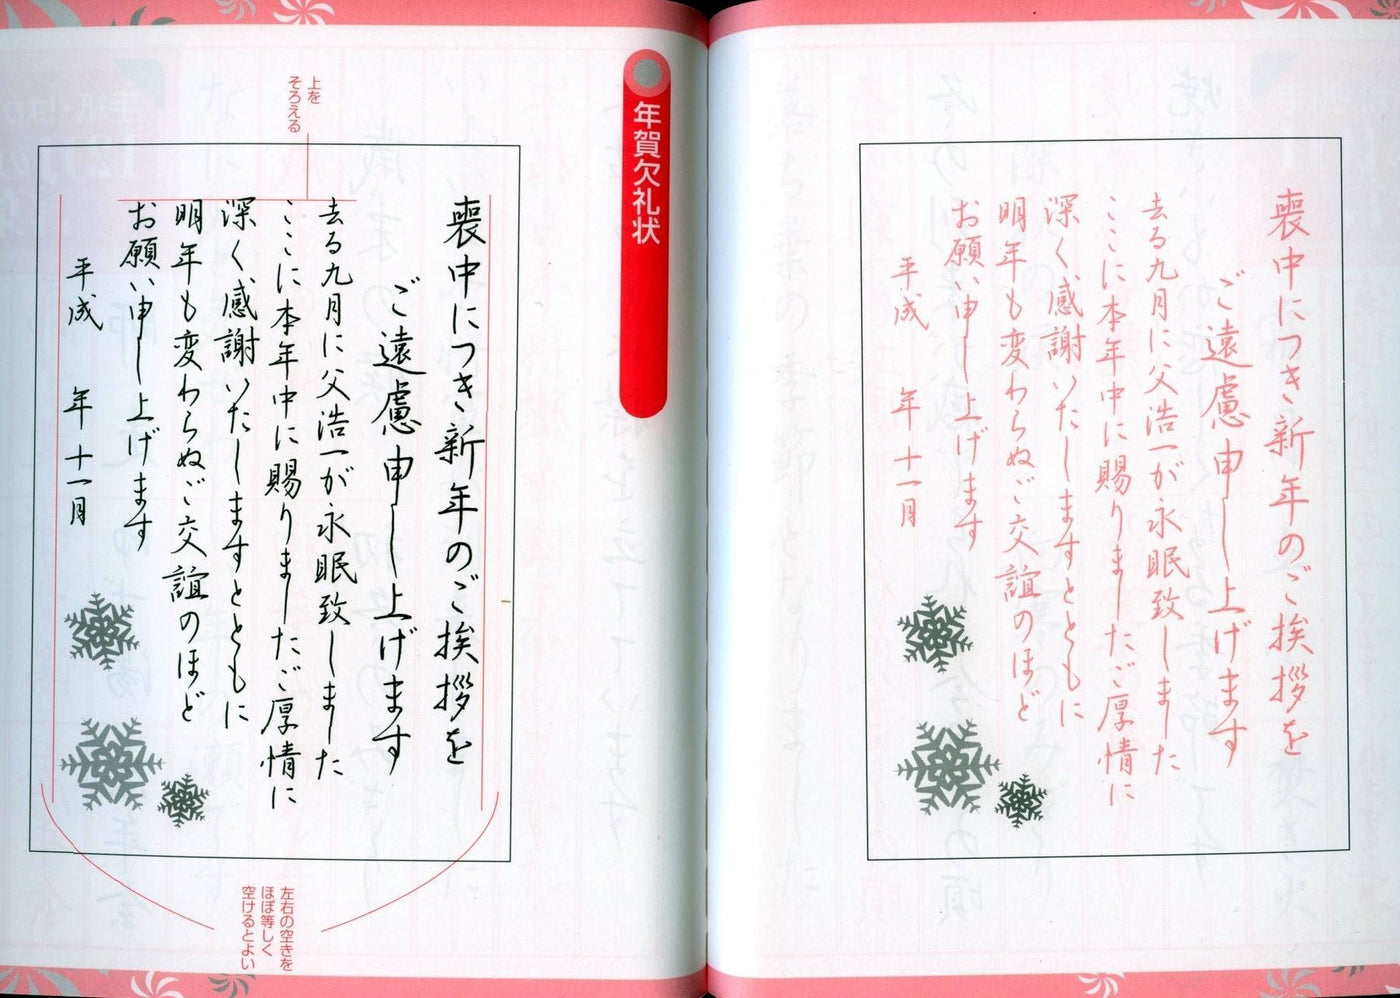 年賀欠礼状
上を
そろえる
喪中につき新年のご挨拶を
ご遠慮申し上げます
去る九月に父浩一が永眠致しました
ここに本年中に賜りましたご厚情に
深く感謝いたしますとともに
明年も変わらぬご交誼のほど
お願い申し上げます
平成　年十一月
左右の空きを
ほぼ等しく
空けるとよい
喪中につき新年のご挨拶を
ご遠慮申し上げます
去る九月に父浩一が永眠致しました
ここに本年中に賜りましたご厚情に
深く感謝いたしますとともに
明年も変わらぬご交誼のほど
お願い申し上げます
平成　年十一月